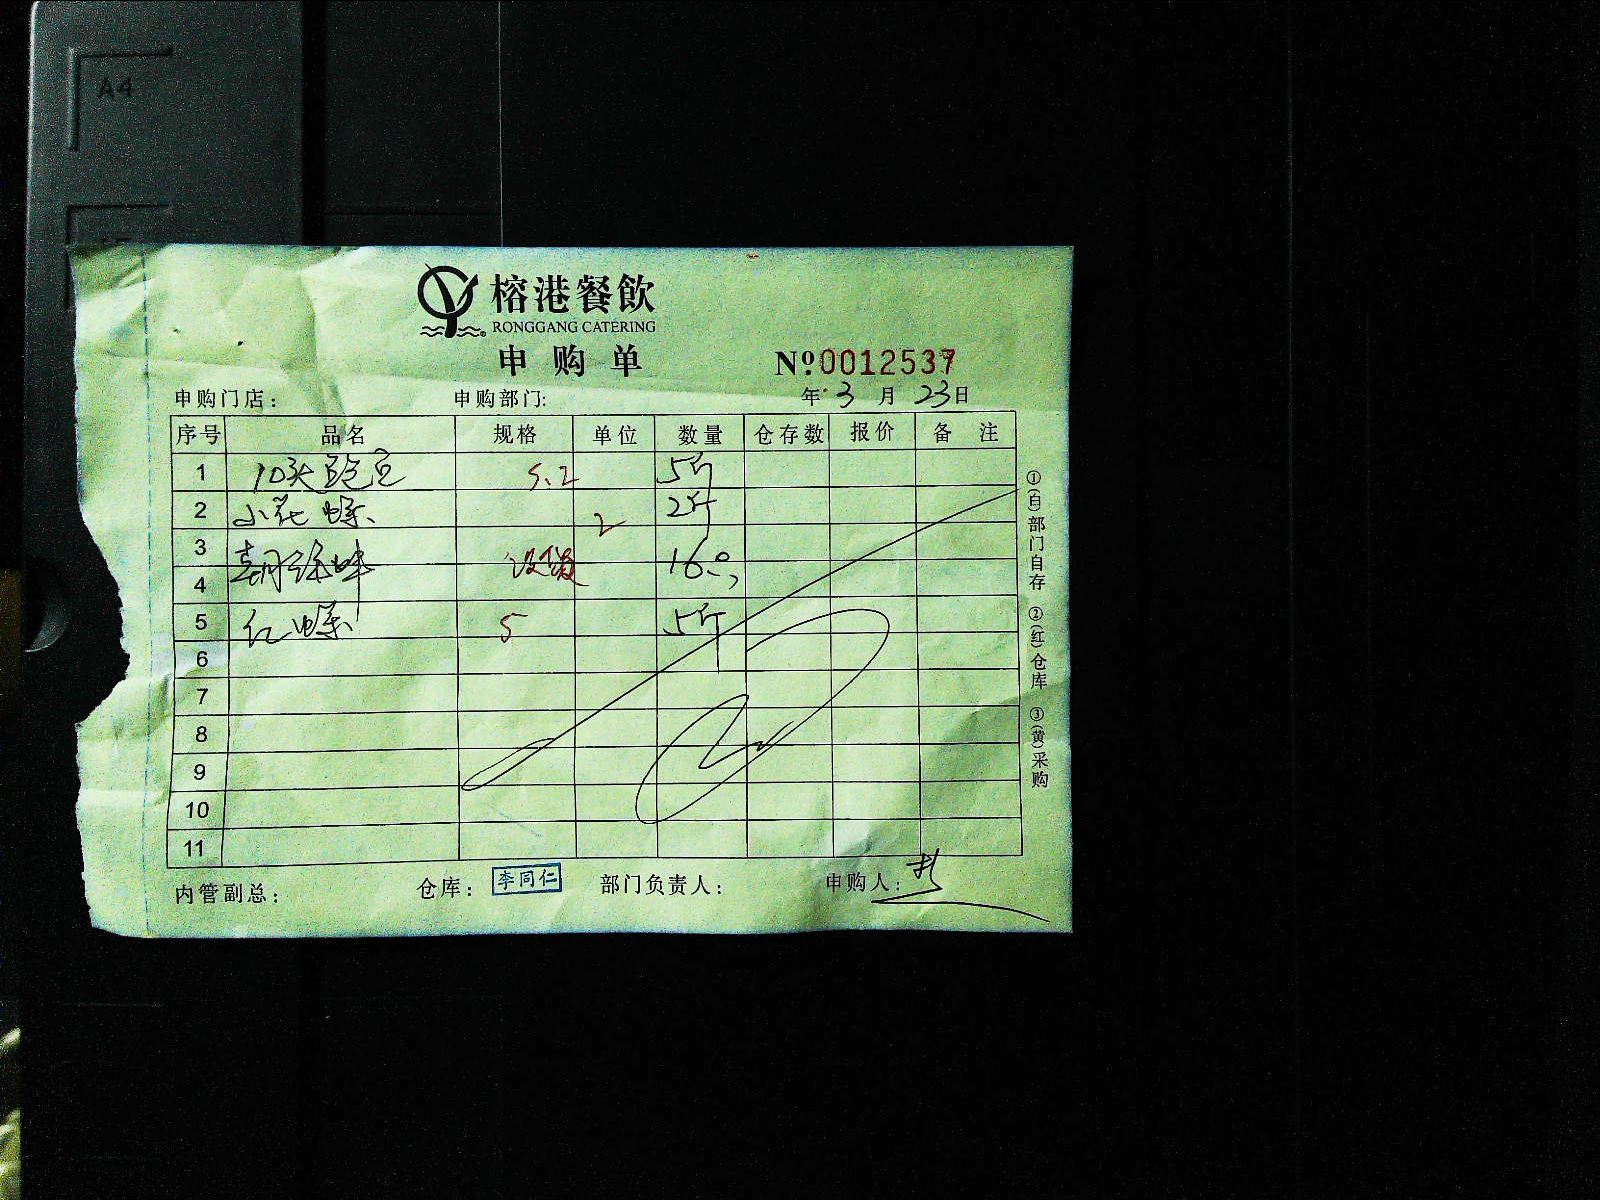 A4
榕港餐飲
RONGGANG CATERING
申购单
Nº 0012537
申购门店： 申购部门: 年 3 月 23 日
序号 品名 规格 单位 数量 仓存数 报价 备 注
1 10头鲍鱼 5.2 5斤
2 小花螺 2 2斤
3
4 没货 16
5 红螺 5 5斤
6
7
8
9
10
11
内管副总： 仓库： 李同仁 部门负责人： 申购人：
①(白)部门自存 ②(红)仓库 ③(黄)采购